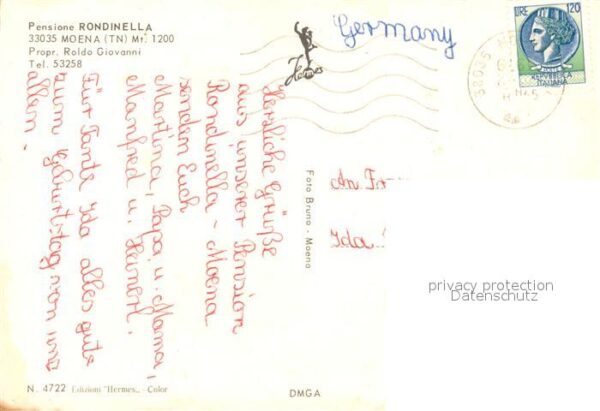 Pensione RONDINELLA
33035 MOENA (TN) Mt. 1200
Propr. Roldo Giovanni
Tel. 53258
Hermes
Germany
LIRE 120
Herzliche Grüße
aus unserer Pension
Rondinella - Moena
senden Euch
Martina, Papa u. Mama,
Manfred u. Heinerl.
Für Tante Ida alles gute
zum Geburtstag von uns
allen.
Foto Bruno - Moena
An Fr
Ida
privacy protection
Datenschutz
N. 4722 Edizioni "Hermes" - Color
DMGA